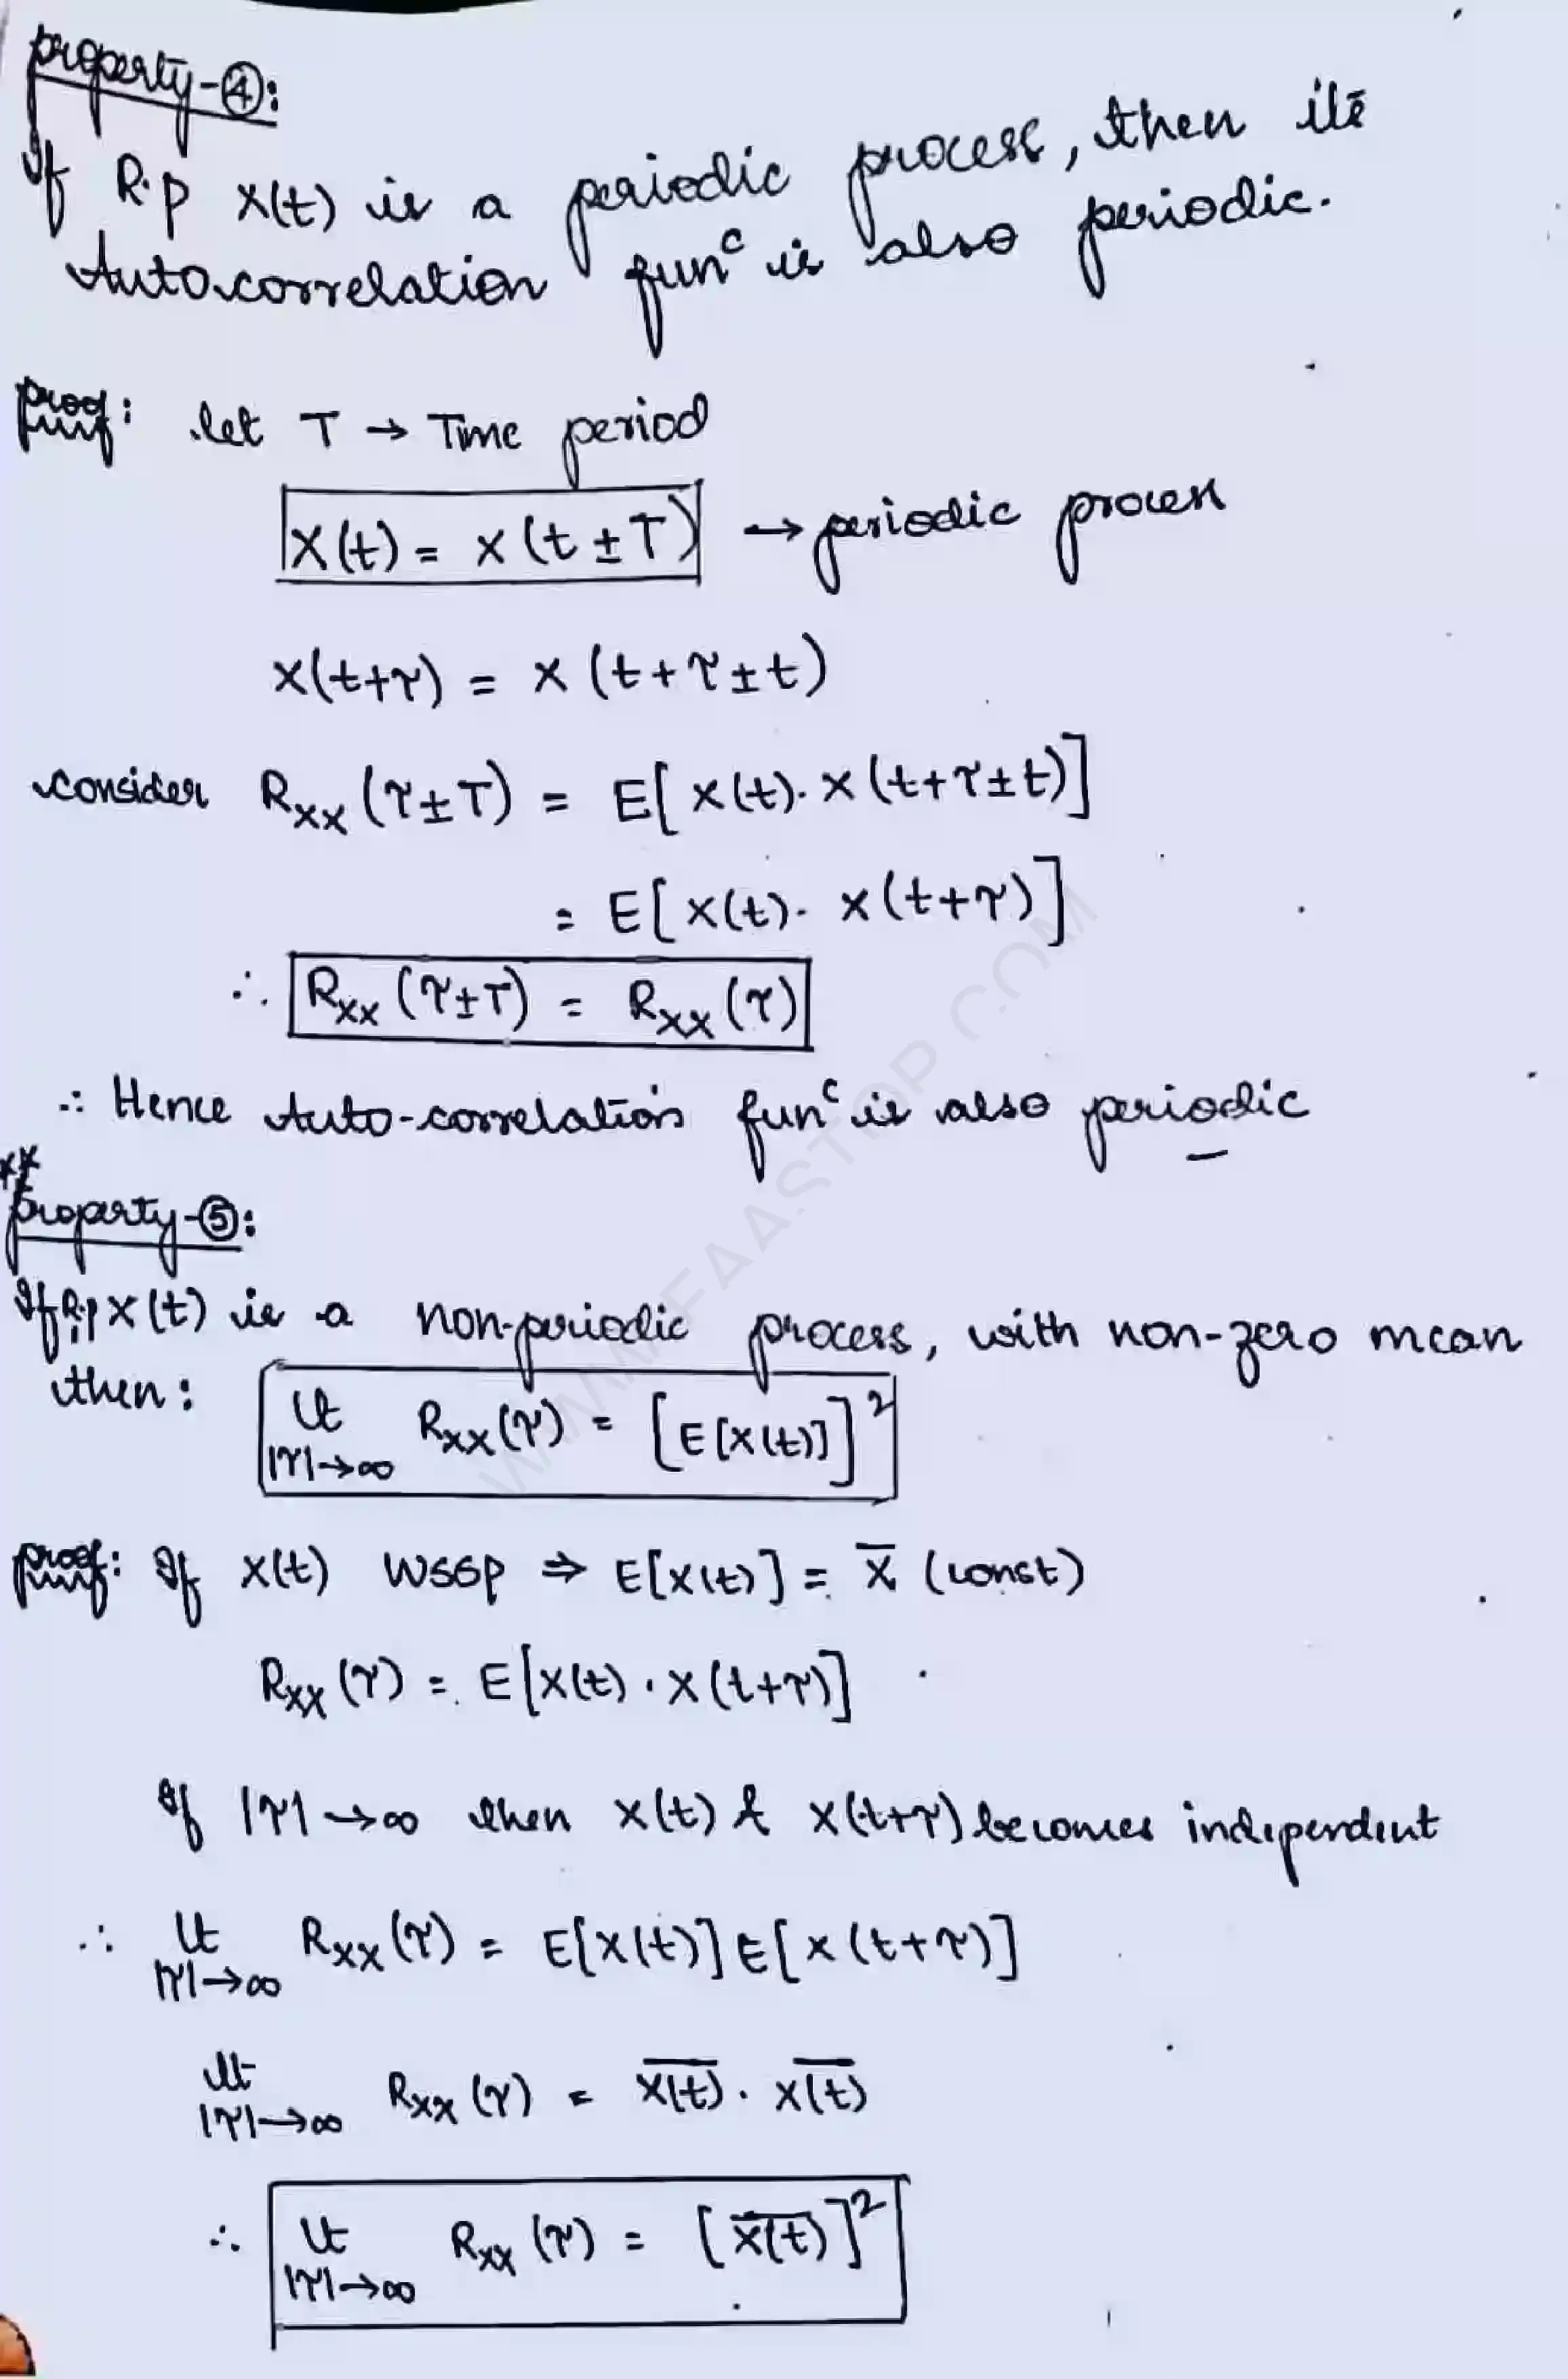 property-④:
If R.p X(t) is a periodic process, then its
Auto.correlation funᶜ is also periodic.
proof: let T → Time period
X(t) = X(t ± T) → periodic process
X(t+τ) = X(t+τ±t)
consider R_XX(τ±T) = E[X(t)·X(t+τ±t)]
= E[X(t)· X(t+τ)]
∴ R_XX(τ±T) = R_XX(τ)
∴ Hence Auto-correlation funᶜ is also periodic
**
property-⑤:
If R.p X(t) is a non-periodic process, with non-zero mean
then: Lt |τ|→∞ R_XX(τ) = [E[X(t)]]²
proof: If X(t) WSSP ⇒ E[X(t)] = X̅ (const)
R_XX(τ) = E[X(t)·X(t+τ)]
If |τ|→∞ then X(t) & X(t+τ) becomes independent
∴ Lt |τ|→∞ R_XX(τ) = E[X(t)]E[X(t+τ)]
Lt |τ|→∞ R_XX(τ) = \overline{X(t)} · \overline{X(t)}
∴ Lt |τ|→∞ R_XX(τ) = [\overline{X(t)}]²
WWW.FAASTOP.COM